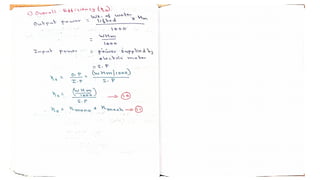 c) Overall Efficiency (η₀)
Output power = Wt. of water lifted × Hm / 1000
= WHm / 1000
Input power = power supplied by
electric motor
= S.P
η₀ = O.P / S.P = (WHm/1000) / S.P
η₀ = (WHm/1000) / S.P
η₀ = ηmano × ηmech